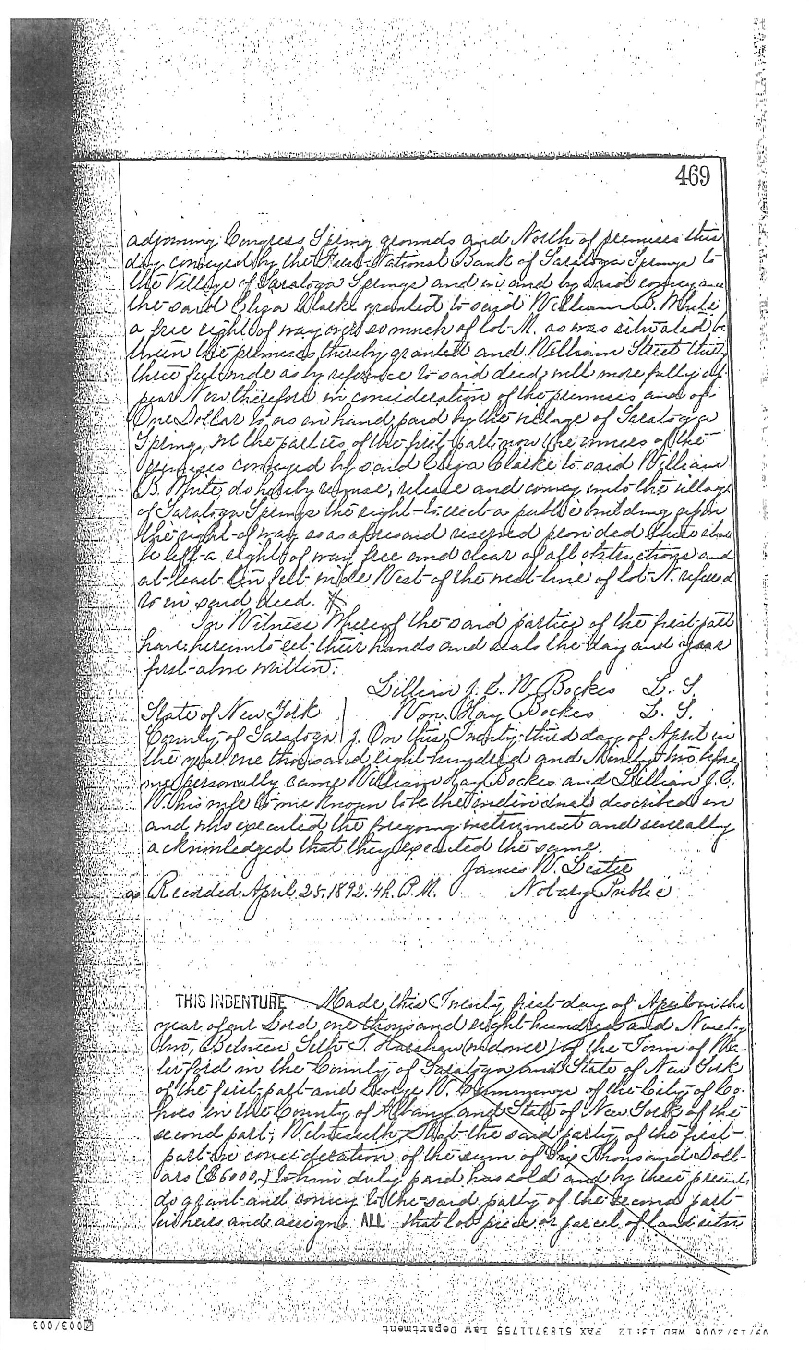 469
adjoining Congress Spring grounds and North of premises this
day conveyed by the First National Bank of Saratoga Springs to
the Village of Saratoga Springs and in and by said conveyance
the said Eliza Clarke granted to said William B. White
a free right of way over so much of lot M. as was situated be
tween the premises thereby granted and William Street thirty
three feet wide as by reference to said deed will more fully ap
pear Now therefore in consideration of the premises and of
One Dollar to us in hand paid by the village of Saratoga
Springs, we the parties of the first part now the owners of the
premises conveyed by said Eliza Clarke to said William
B. White, do hereby remise, release and convey unto the village
of Saratoga Springs the right to erect a public building upon
the right of way so as aforesaid reserved provided there shall
be left a right of way free and clear of all obstructions and
at least ten feet wide West of the west line of lot N. referred
to in said deed.
In Witness Whereof the said parties of the first part
have hereunto set their hands and seals the day and year
first above written.
Lillian J. C. W. Bockes L. S.
State of New York Wm. Hay Bockes L. S.
County of Saratoga On this Twenty third day of April in
the year one thousand eight hundred and Ninety two before
me personally came William Hay Bockes and Lillian J. C.
W. his wife to me known to be the individuals described in
and who executed the foregoing instrument and severally
acknowledged that they executed the same.
James W. Lester
Recorded April 25. 1892. 4h. P.M. Notary Public
THIS INDENTURE Made this Twenty first day of April in the
year of our Lord one thousand eight hundred and Ninety
two, Between Seth T. (widower) of the Town of Wa
terford in the County of Saratoga and State of New York
of the first part and George W. of the City of Co
hoes in the County of Albany and State of New York of the
second part, Witnesseth, That the said party of the first
part in consideration of the sum of Six Thousand Doll
ars ($6000.) to him duly paid has sold and by these presents
do grant and convey to the said party of the second part
his heirs and assigns ALL that lot piece or parcel of land situ
003/003
09/13/2006 WED 13:12 FAX 5183711755 Law Department